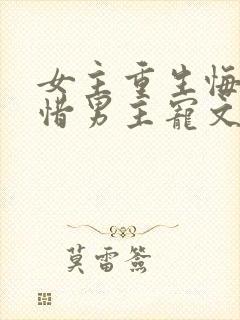 女主重生悔
惜男主寵文
莫雷簽